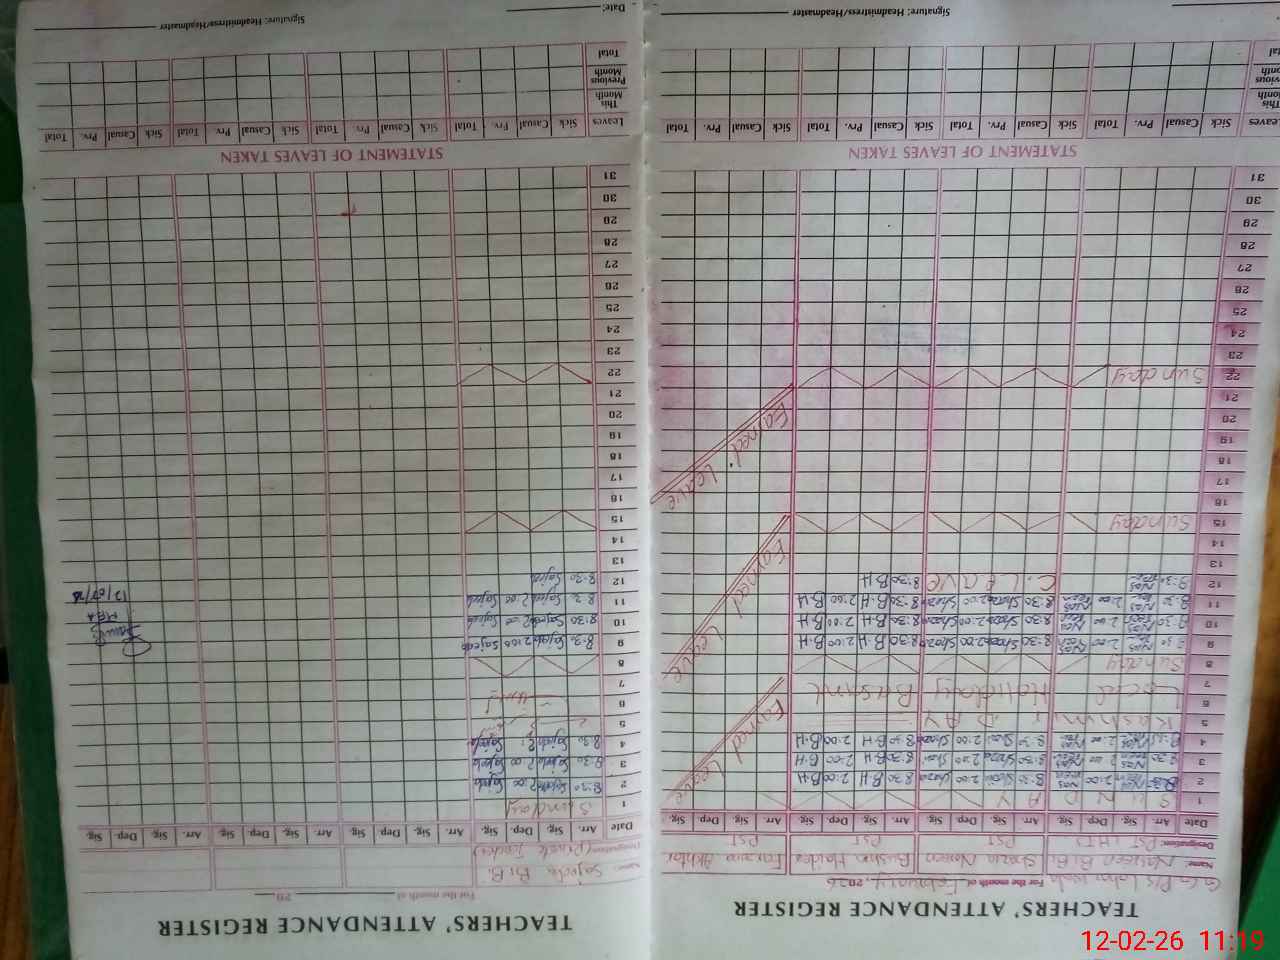 TEACHERS' ATTENDANCE REGISTER
For the month of February, 2026
Name: Nasreen BiBi Shazia Noreen Bushra Haider Fouzia Akhtar
Designation: PST PST PST
Date Arr. Sig. Dep. Sig. Arr. Sig. Dep. Sig. Arr. Sig. Dep. Sig. Arr. Sig. Dep. Sig.
1 SUNDAY
2 8:30 2:00 8:30 2:00 8:30 B.H 2:00 B.H
3 8:30 2:00 8:30 2:00 8:30 B.H 2:00 B.H
4 8:30 2:00 8:30 2:00 8:30 B.H 2:00 B.H
5 Kashmir DAY
6 Local Holiday Basant
7
8 Sunday
9 8:30 2:00 8:30 2:00 8:30 B.H 2:00 B.H
10 8:30 2:00 8:30 2:00 8:30 B.H 2:00 B.H
11 8:30 2:00 8:30 2:00 8:30 B.H 2:00 B.H
12 8:30 C. Leave 8:30 B.H
13
14
15 Sunday
16
17
18
19
20
21
22 Sunday
23
24
25
26
27
28
29
30
31
Earned Leave
Earned Leave
Earned Leave
STATEMENT OF LEAVES TAKEN
Leaves Sick Casual Prv. Total Sick Casual Prv. Total Sick Casual Prv. Total Sick Casual Prv. Total
This Month
Previous Month
Total
Signature: Headmistress/Headmaster
TEACHERS' ATTENDANCE REGISTER
For the month of 20
Name: Sajida BiBi
Designation: (Private Teacher)
Date Arr. Sig. Dep. Sig. Arr. Sig. Dep. Sig. Arr. Sig. Dep. Sig. Arr. Sig. Dep. Sig.
1 Sunday
2 8:30 Sajida 2:00 Sajida
3 8:30 Sajida 2:00 Sajida
4 8:30 Sajida Sajida
5
6
7
8
9 8:30 Sajida 2:00 Sajida
10 8:30 Sajida 2:00 Sajida
11 8:30 Sajida 2:00 Sajida
12 8:30 Sajida
13
14
15
16
17
18
19
20
21
22
23
24
25
26
27
28
29
30
31
STATEMENT OF LEAVES TAKEN
Leaves Sick Casual Prv. Total Sick Casual Prv. Total Sick Casual Prv. Total Sick Casual Prv. Total
This Month
Previous Month
Total
Signature: Headmistress/Headmaster
Date:
12-02-26 11:19